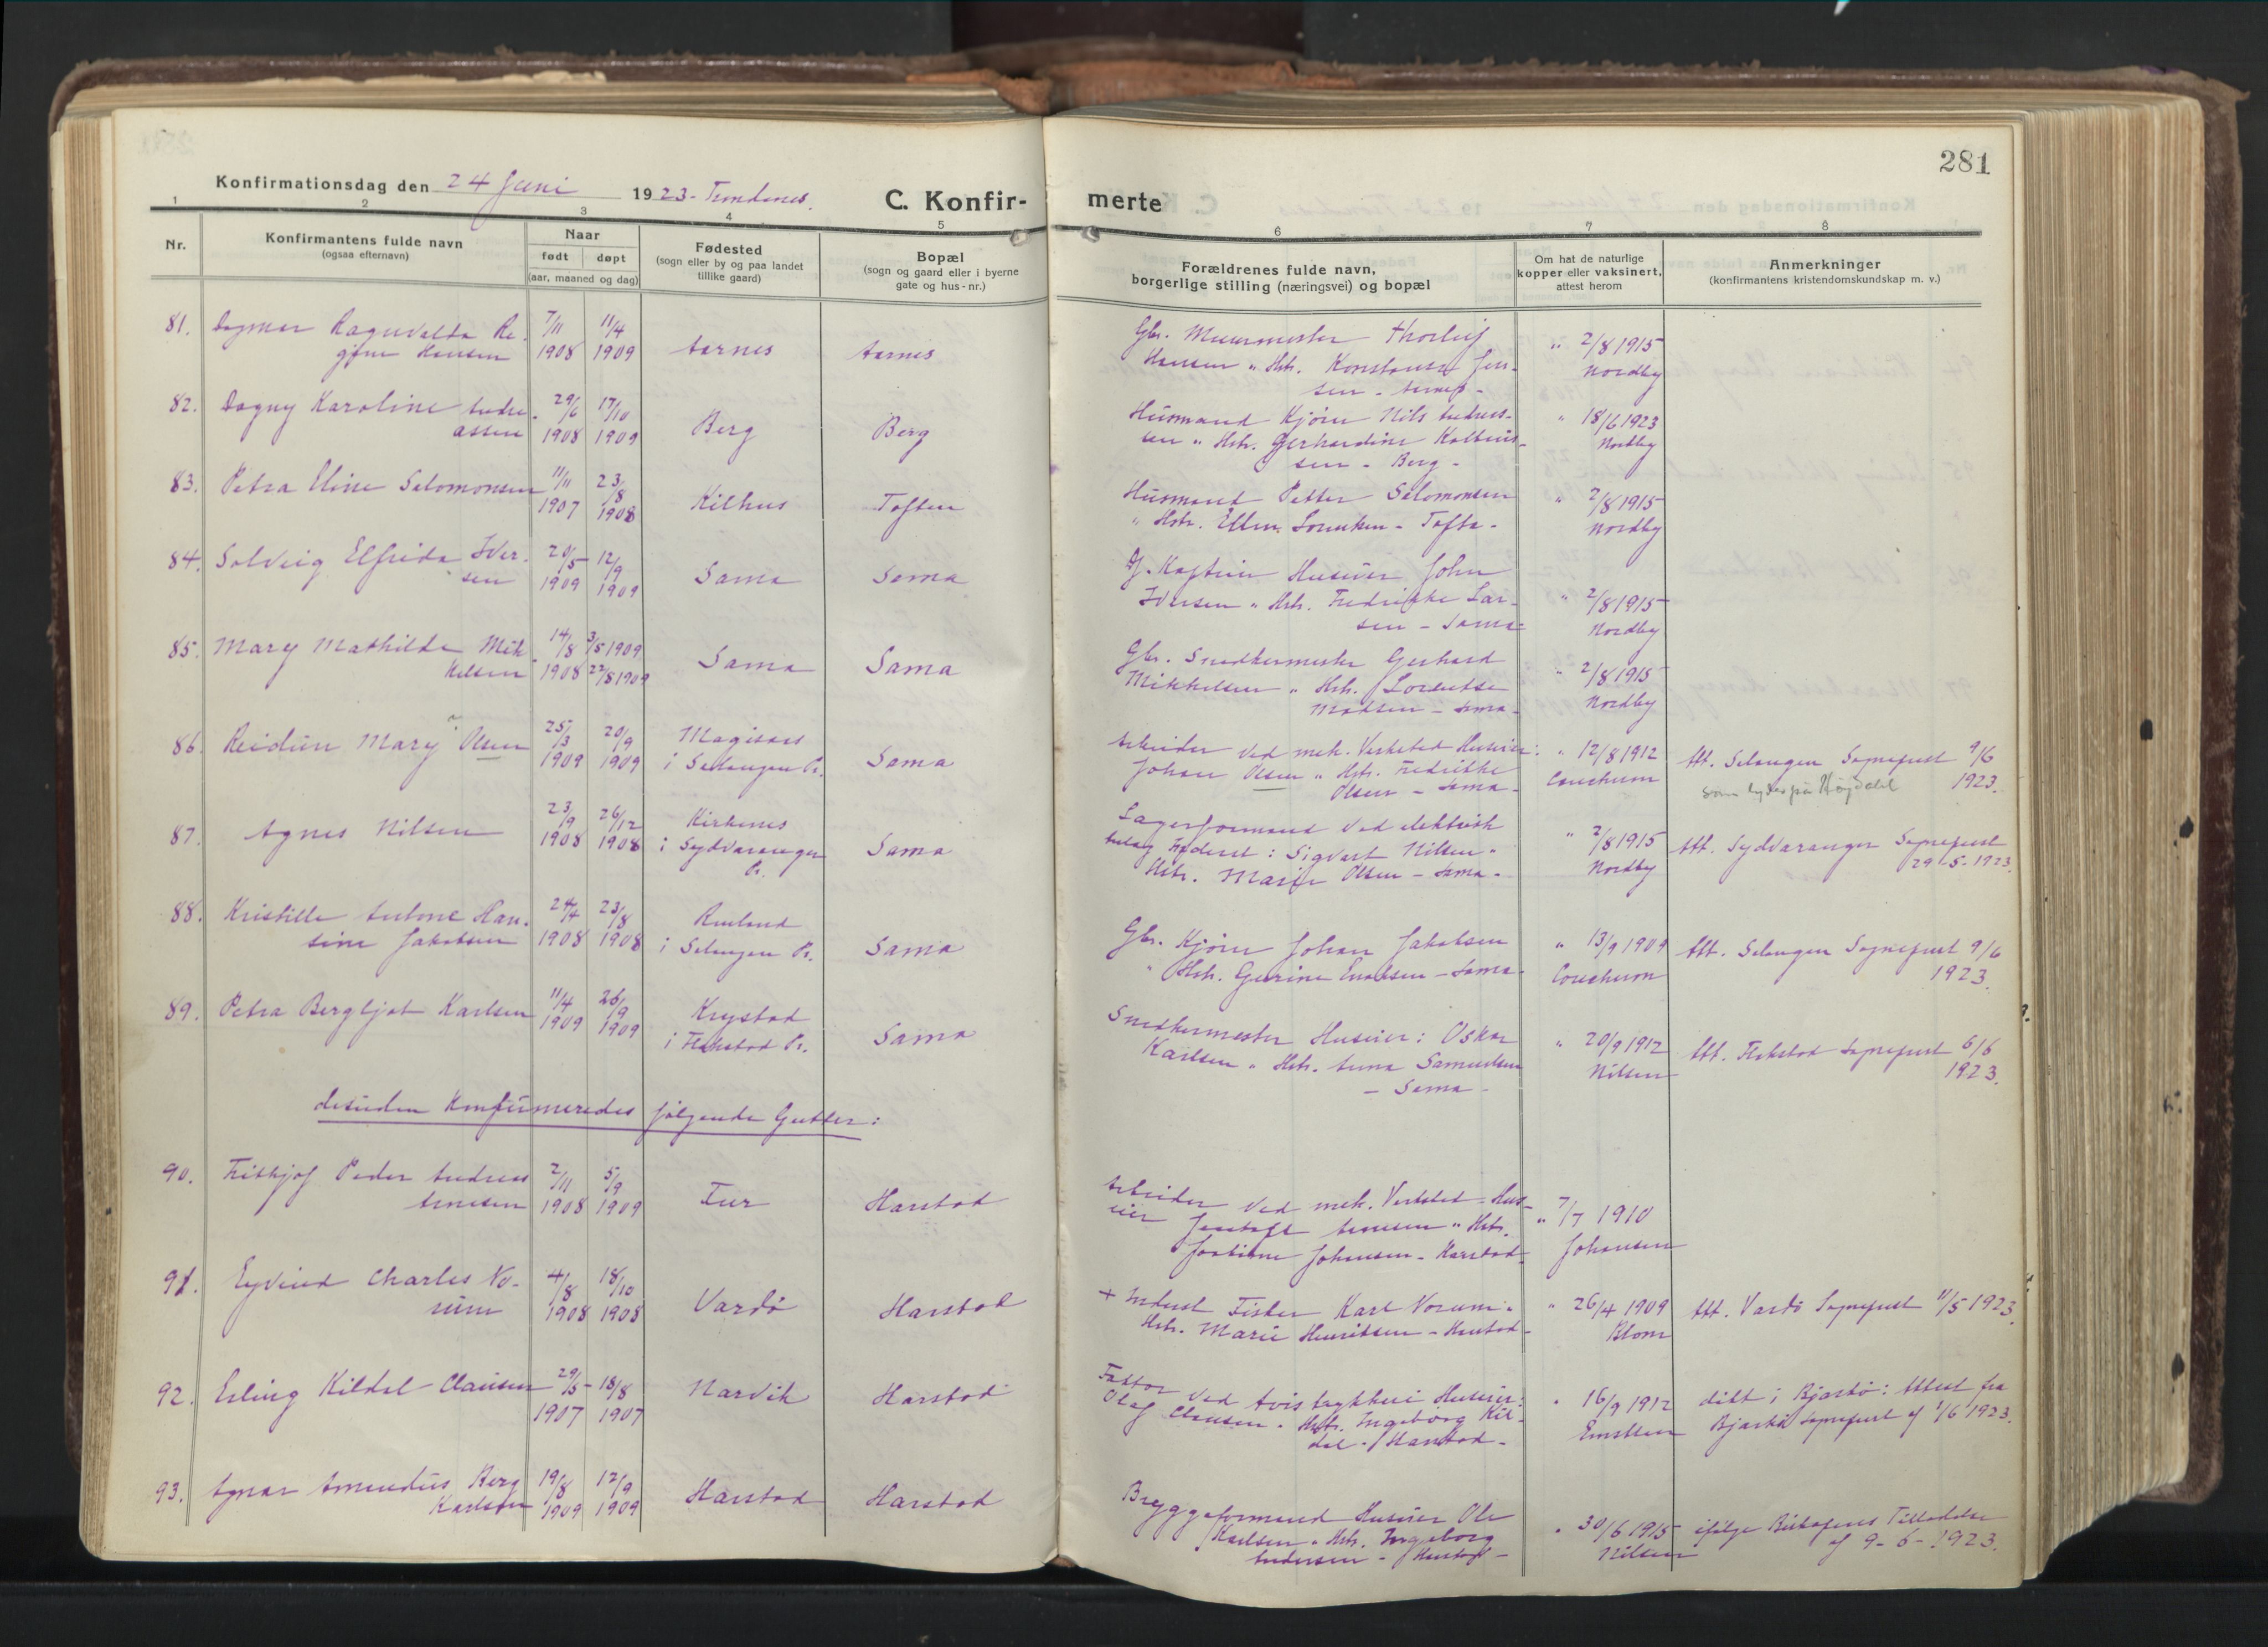 281
Konfirmationsdag den 24 Juni 1923 - Trondenes.
C. Konfir-
merte
1 2 3 4 5 6 7 8
Nr.
Konfirmantens fulde navn
(ogsaa efternavn)
Naar
født døpt
(aar, maaned og dag)
Fødested
(sogn eller by og paa landet
tillike gaard)
Bopæl
(sogn og gaard eller i byerne
gate og hus-nr.)
Forældrenes fulde navn,
borgerlige stilling (næringsvei) og bopæl
Om hat de naturlige
kopper eller vaksinert,
attest herom
Anmerkninger
(konfirmantens kristendomskundskap m. v.)
81. Dagmar Ragnvalda Re-
gine Hansen
7/11 1908 11/4 1909
Aarnes Aarnes
Gbr. Murmester Thorleif
Hansen " Hstr. Konstanse Jen-
sen - Aarnes -
" 2/8 1915
Nordby
82. Dagny Karoline Andre-
assen
29/6 1908 17/10 1909
Berg Berg
Husmand Kjører Nils Andreas-
sen " Hstr. Gerhardine
sen - Berg -
" 18/6 1923
Nordby
83. Petra Eline Salomonsen
11/11 1907 23/8 1908
Kilhus Toften
Husmand Petter Salomonsen
" Hstr. Ellen Lorentsen - Tofta -
" 2/8 1915
Nordby
84. Solveig Elfrida Iver-
sen
20/5 1909 12/9 1909
Sama Sama
Kaptein Huseier John
Iversen " Hstr. Fredrikke Lar-
sen - Sama -
" 2/8 1915
Nordby
85. Mary Mathilde Mik-
kelsen
14/8 1908 3/5 1909
22/8 1909
Sama Sama
Gbr. Snedkermester Gerhard
Mikkelsen " Hstr.
Madsen - Sama -
" 2/8 1915
Nordby
86. Reidun Mary Olsen
25/3 1909 20/9 1909
i Salangen Pr.
Sama
Arbeider ved mek. Verksted Huseier:
Johan Olsen " Hstr. Fredrikke
Olsen - Sama -
" 12/8 1912
Coucheron
Att. Salangen Sogneprest 9/6
1923.
87. Agnes Nilsen
23/9 1908 26/12 1908
Kirkenes
i Sydvaranger
Pr.
Sama
Lagerformand ved elektrisk
Sigvart Nilsen "
Hstr. Marie Olsen - Sama -
" 2/8 1915
Nordby
Att. Sydvaranger Sogneprest
29-5-1923.
88. Kristille Antone Han-
sine Jakobsen
24/4 1908 23/8 1908
i Salangen Pr.
Sama
Gbr. Kjører Johan Jakobsen
" Hstr. Gurine - Sama -
" 13/9 1909
Coucheron
Att. Salangen Sogneprest 9/6
1923.
89. Petra Bergljot Karlsen
11/4 1909 26/9 1909
Krystad
i Flakstad Pr.
Sama
Snedkermester Huseier: Oskar
Karlsen " Hstr. Anna Samuelsen
- Sama -
" 20/9 1912
Nilsen
Att. Flakstad Sogneprest 6/6
1923.
desuden konfirmeredes følgende Gutter:
90. Frithjof Peder Andreas
Arnesen
2/11 1908 5/9 1909
Harstad
Arbeider ved mek. Verksted - Hus-
eier Arnesen " Hstr.
Johansen - Harstad -
" 7/7 1910
Johansen
91. Eyvind Charles No-
rum
4/8 1908 18/10 1908
Vardø Harstad
Fisker Karl Norum "
Hstr. Marie Henriksen - Harstad -
" 26/4 1909
Blom
Att. Vardø Sogneprest 11/5 1923.
92. Erling Kildal Clausen
29/5 1907 18/8 1907
Narvik Harstad
Faktor ved Avistrykkeri Huseier:
Olaf Clausen " Hstr. Ingeborg Kil-
dal - Harstad -
" 16/9 1912
Att. Attest fra
Bjarkø Sogneprest af 1/6 1923.
93. Agnar Amandus Berg
Karlsen
19/8 1909 12/9 1909
Harstad Harstad
Bryggeformand Huseier Ole
Karlsen " Hstr. Ingeborg
Andersen - Harstad -
" 30/6 1915
Nilsen
ifølge Biskopens Tilladelse
af 9-6-1923.